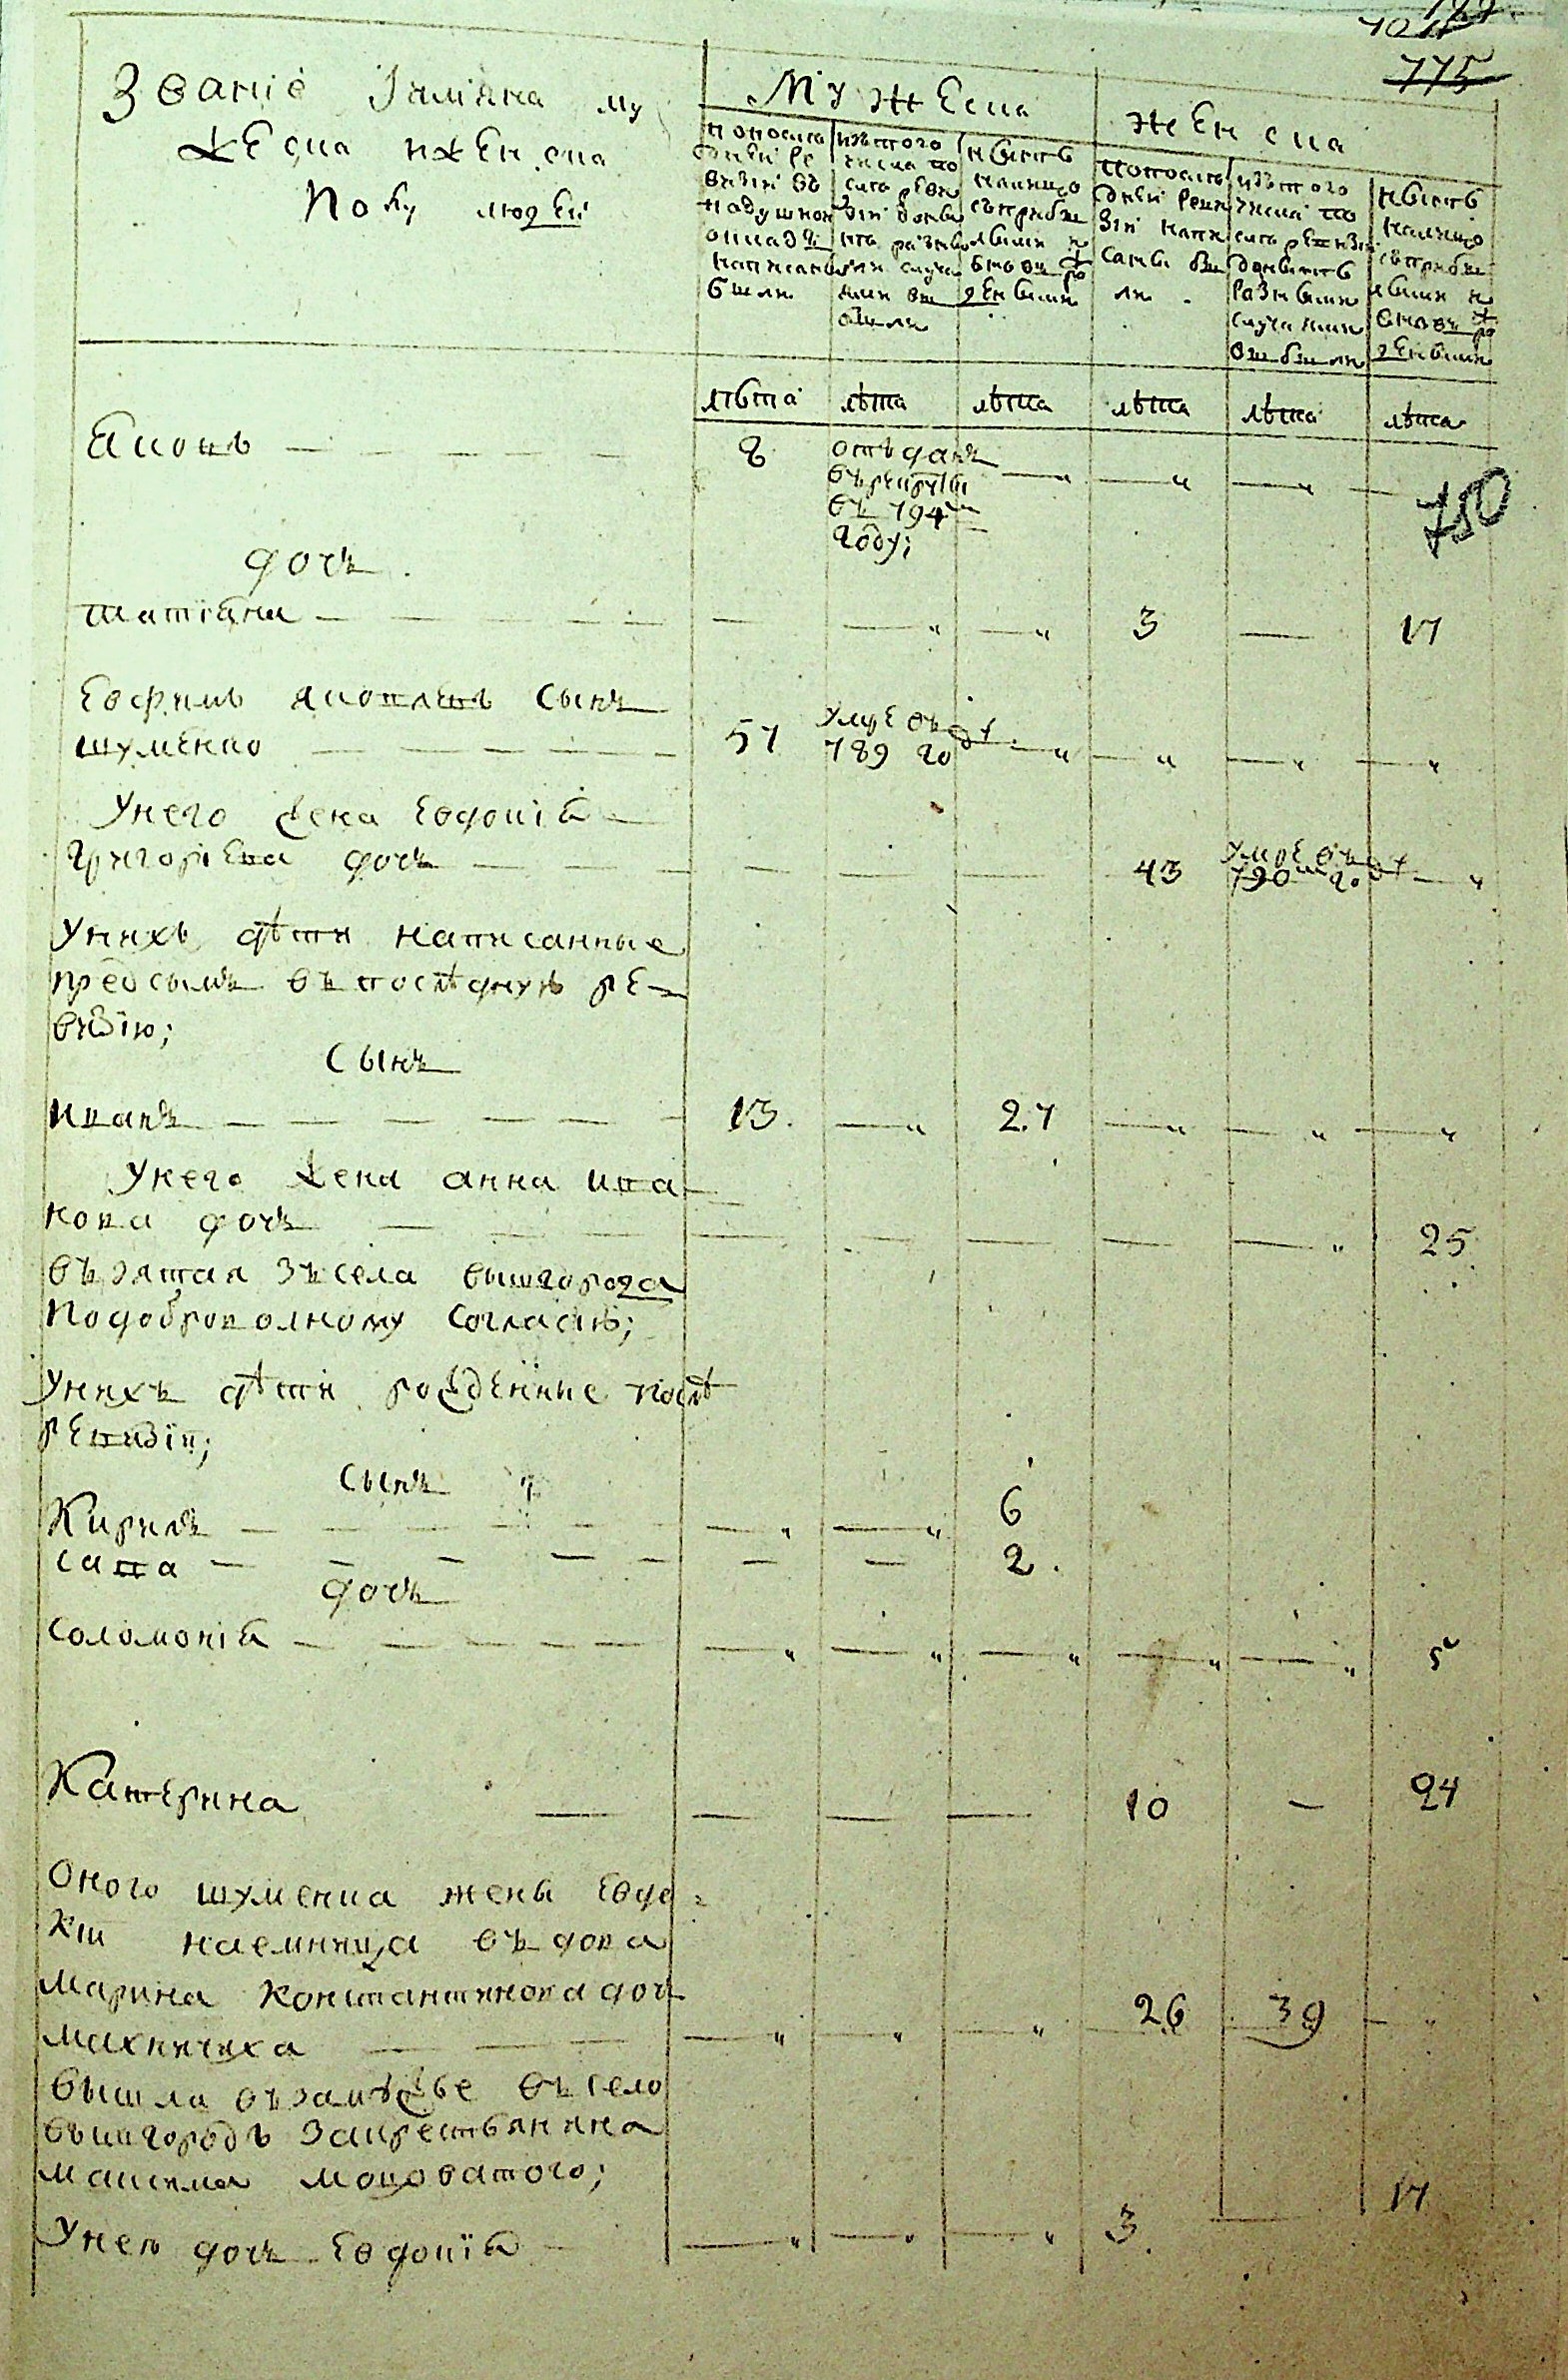 775
Званіе Iимяна му
жеска иженска
полу людей
Мужеска
Женска
попосле
дней ре
визіи въ
подушном
окладе
написаны
были
изътого
числа по
сле реви
зіи
разны
ми случа
ями вы
были
ныне
налицо
сприбы
лыми и
вновь ро
жденными
попосле
дней реви
зіи напи
саны бы
ли
изътого
числа по
сле ревизіи
разными
случаями
выбыли
ныне
налицо
сприбы
лыми и
вновь ро
жденными
лѣта лѣта лѣта лѣта лѣта лѣта
Яковъ 8 отъданъ
въ рекруты
въ 794м
году;
750
дочъ
татіана 3 17
Евфимъ яковлевъ сынъ
шуменко 57 умре въ
789 году
Унего жена Евдокія
григоріева дочъ 43 умре въ
790м году
Унихъ дѣти написанные
предсымъ въ последную ре-
визію;
сынъ
иванъ 13 27
Унего жена анна ива-
нова дочъ 25
възятая зъ села вышгорода
подобровол ному согласію;
Унихъ дѣти рожденные послѣ
ревизіи;
сынъ
Кирилъ 6
сава 2
дочъ
соломонія 5
Катерина 10 24
Оного шуменка жены Евдо-
кіи наемница въдова
марина константинова дочъ
махничиха 26 39
вышла въ замужье въ село
вышгородъ закрестьянина
максима моцоватого;
Унею дочъ Евдокія 3 17